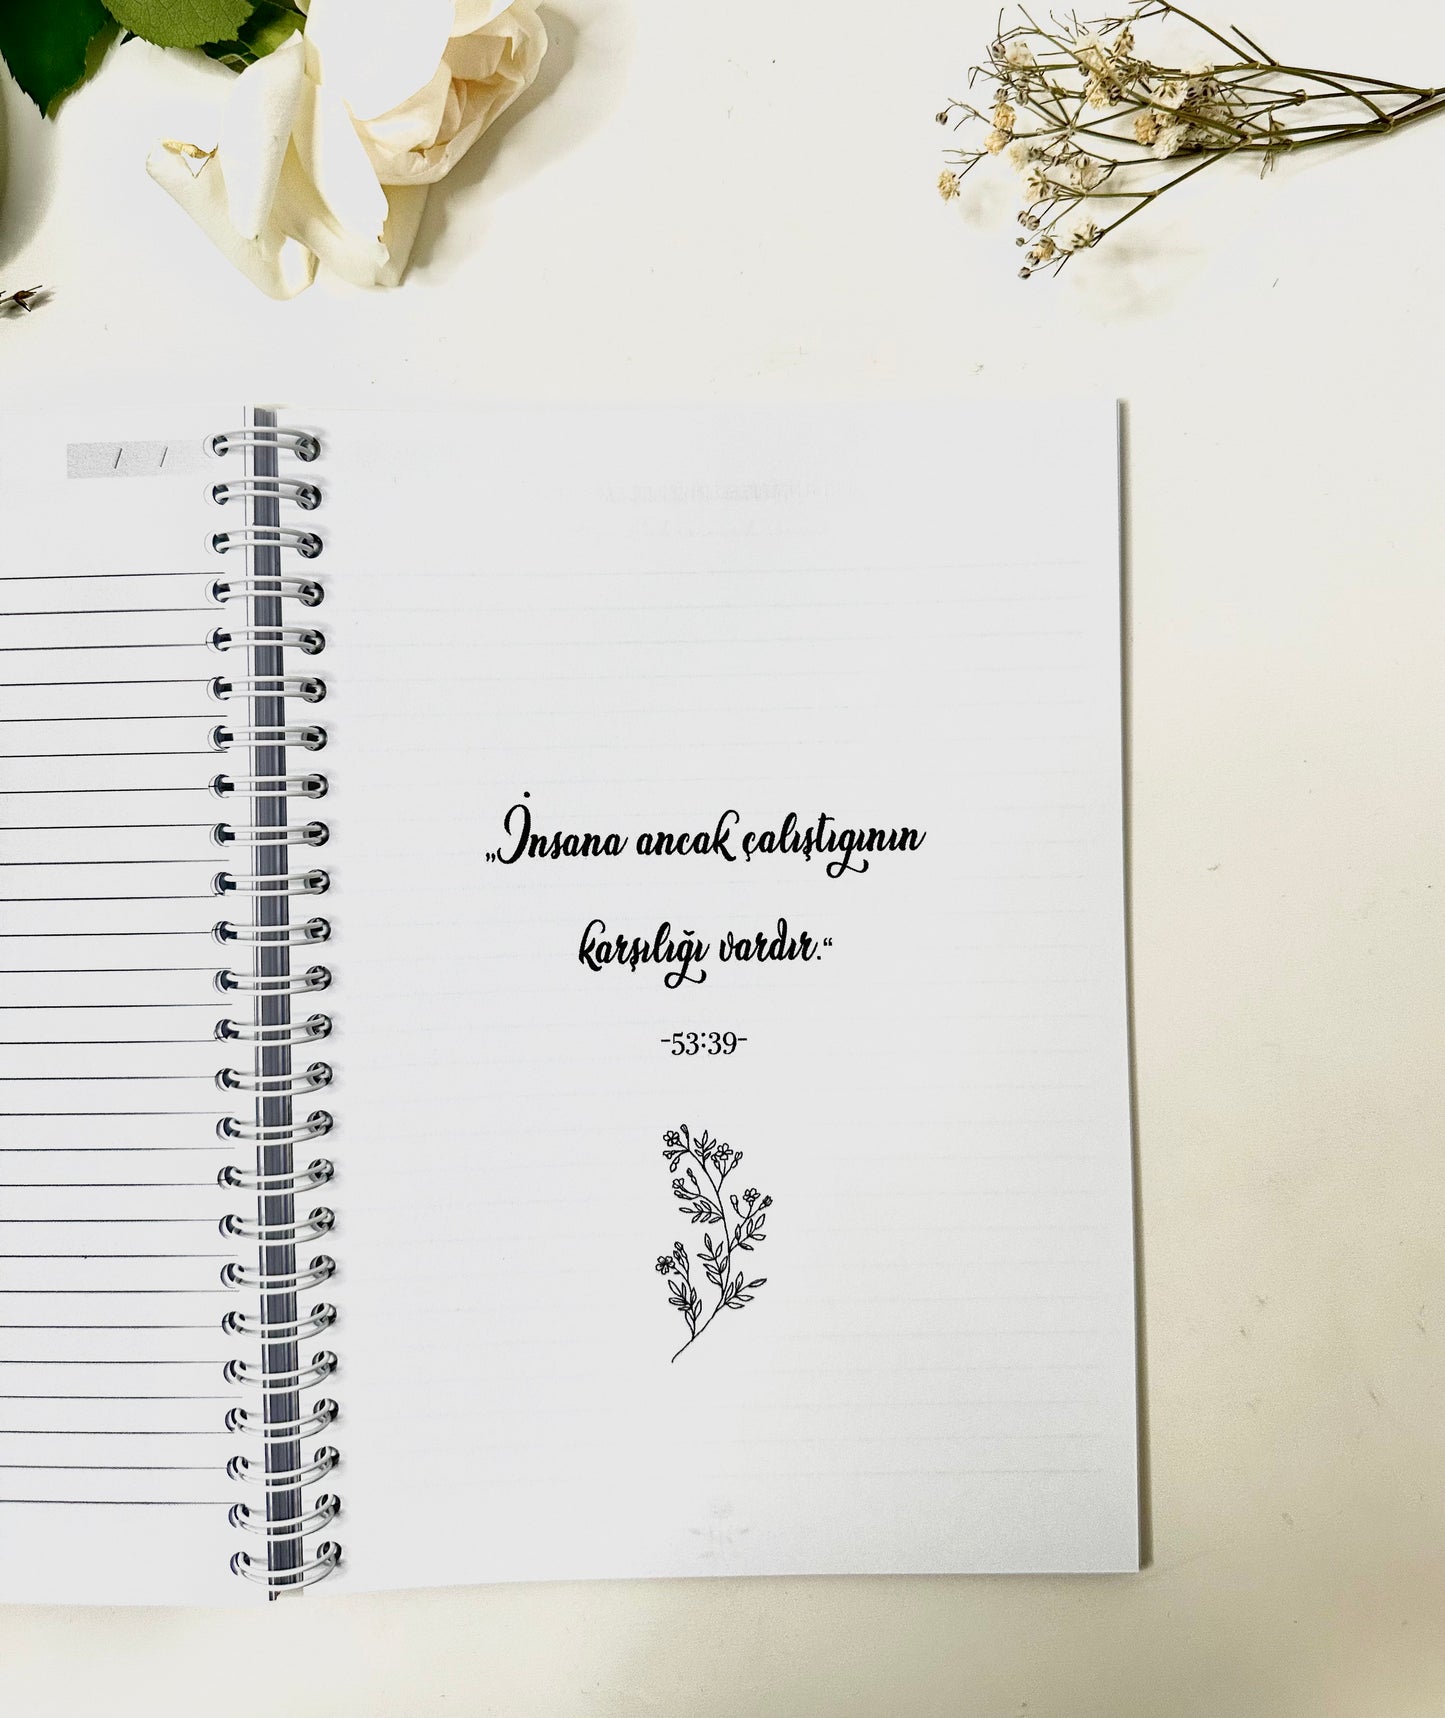 / /
„İnsana ancak çalıştıgının
karşılığı vardır.“
-53:39-